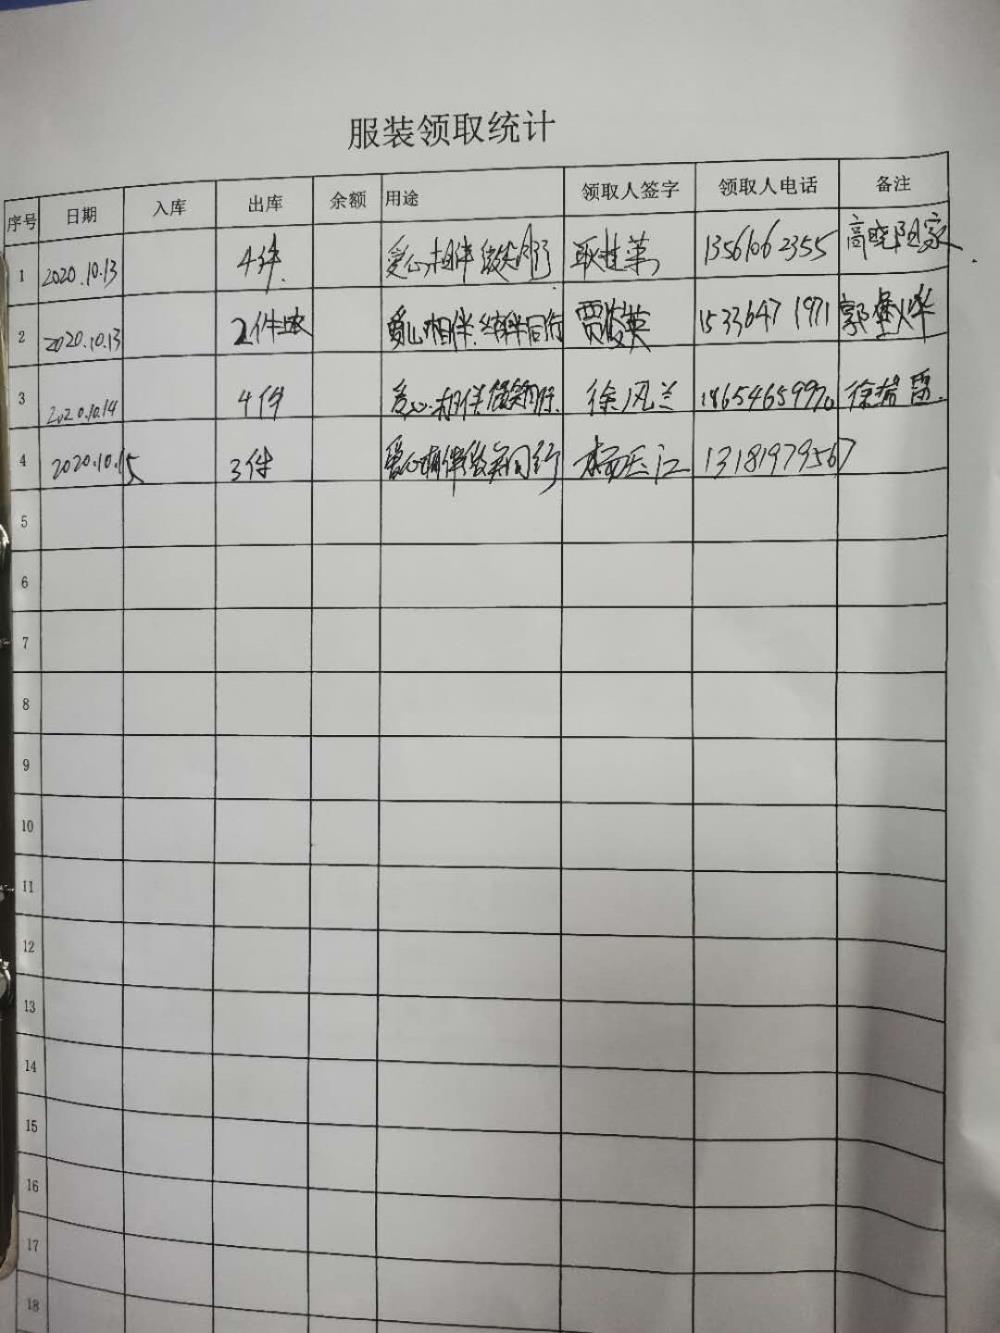 服装领取统计
序号 日期 入库 出库 余额 用途 领取人签字 领取人电话 备注
1 2020.10.13 4件 爱心相伴 耿世英 13561062355 高晓阳家
2 2020.10.13 2件 爱心相伴 同行 贾俊英 15336471971 郭
3 2020.10.14 4件 爱心相伴 徐凤兰 18654659970 徐 雷
4 2020.10.15 3件 爱心相伴 同行 杨玉江 13181979567
5
6
7
8
9
10
11
12
13
14
15
16
17
18